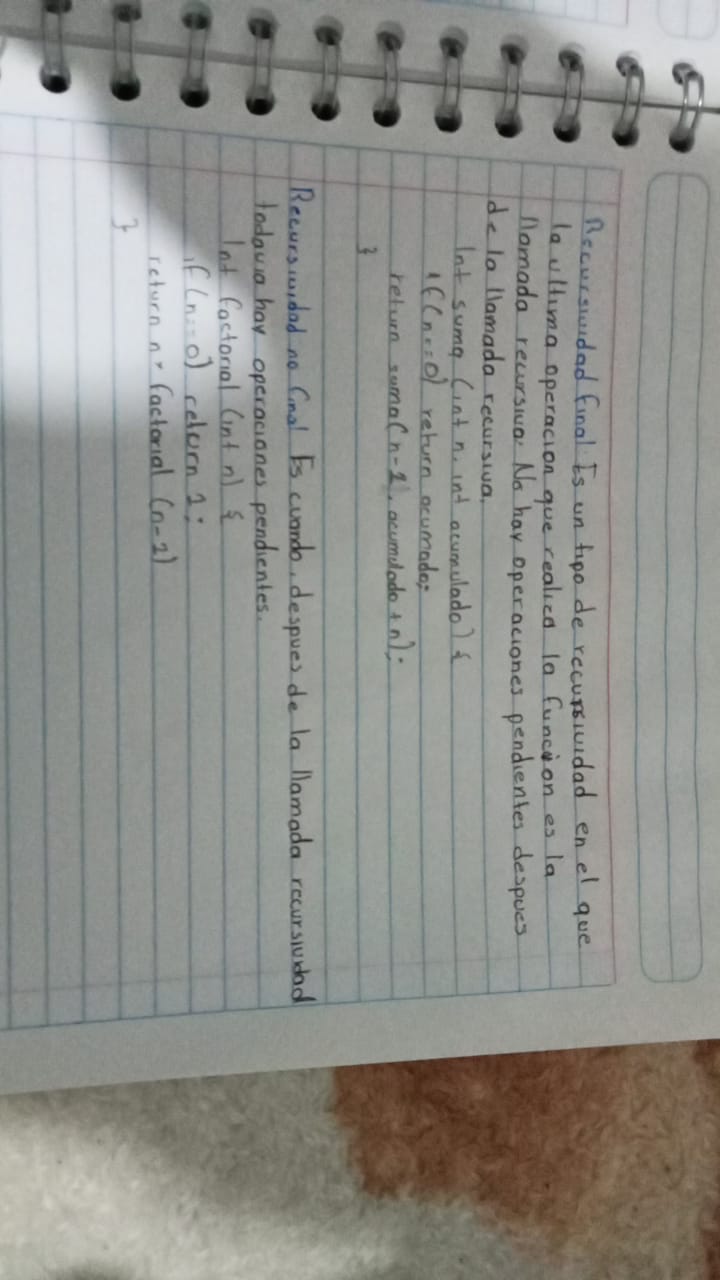 Recursividad final: Es un tipo de recursividad en el que
la ultima operacion que realiza la funcion es la
llamada recursiva. No hay operaciones pendientes despues
de la llamada recursiva.
Int suma (int n, int acumulado) {
if (n==0) return acumado;
return suma(n-1, acumulado + n);
}
Recursividad no final Es cuando, despues de la llamada recursividad
todavia hay operaciones pendientes.
Int factorial (int n) {
if (n==0) return 1;
return n * factorial (n-1)
}